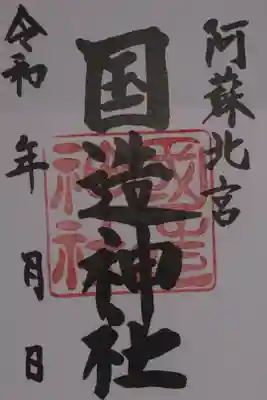 阿蘇北宮
国造神社
令和 年 月 日